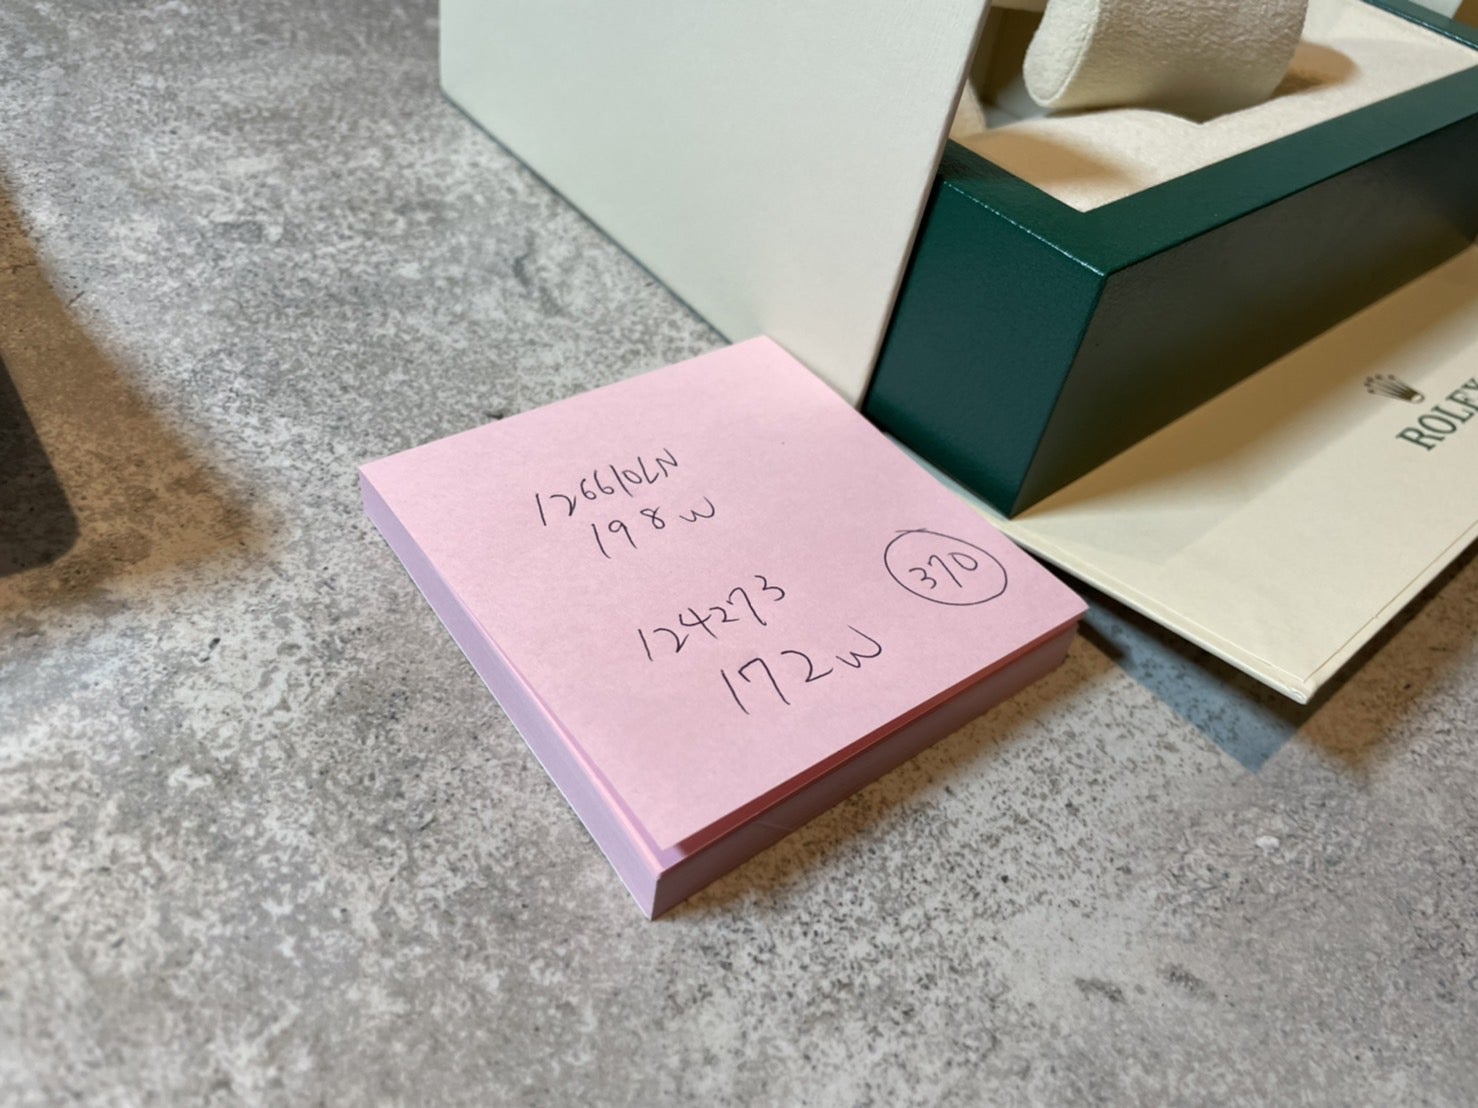 126610LN
198w
124273
172w
370
ROLEX